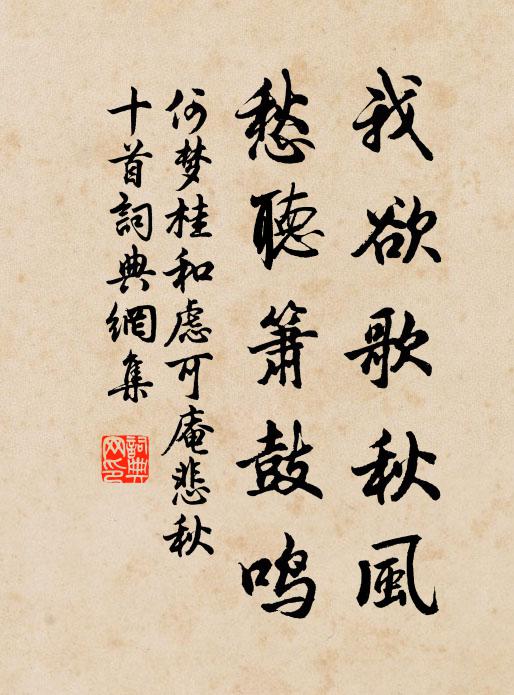 我欲歌秋風
愁聽簫鼓鳴
何梦桂和虑可庵悲秋
十首詞典網集
詞典
网印